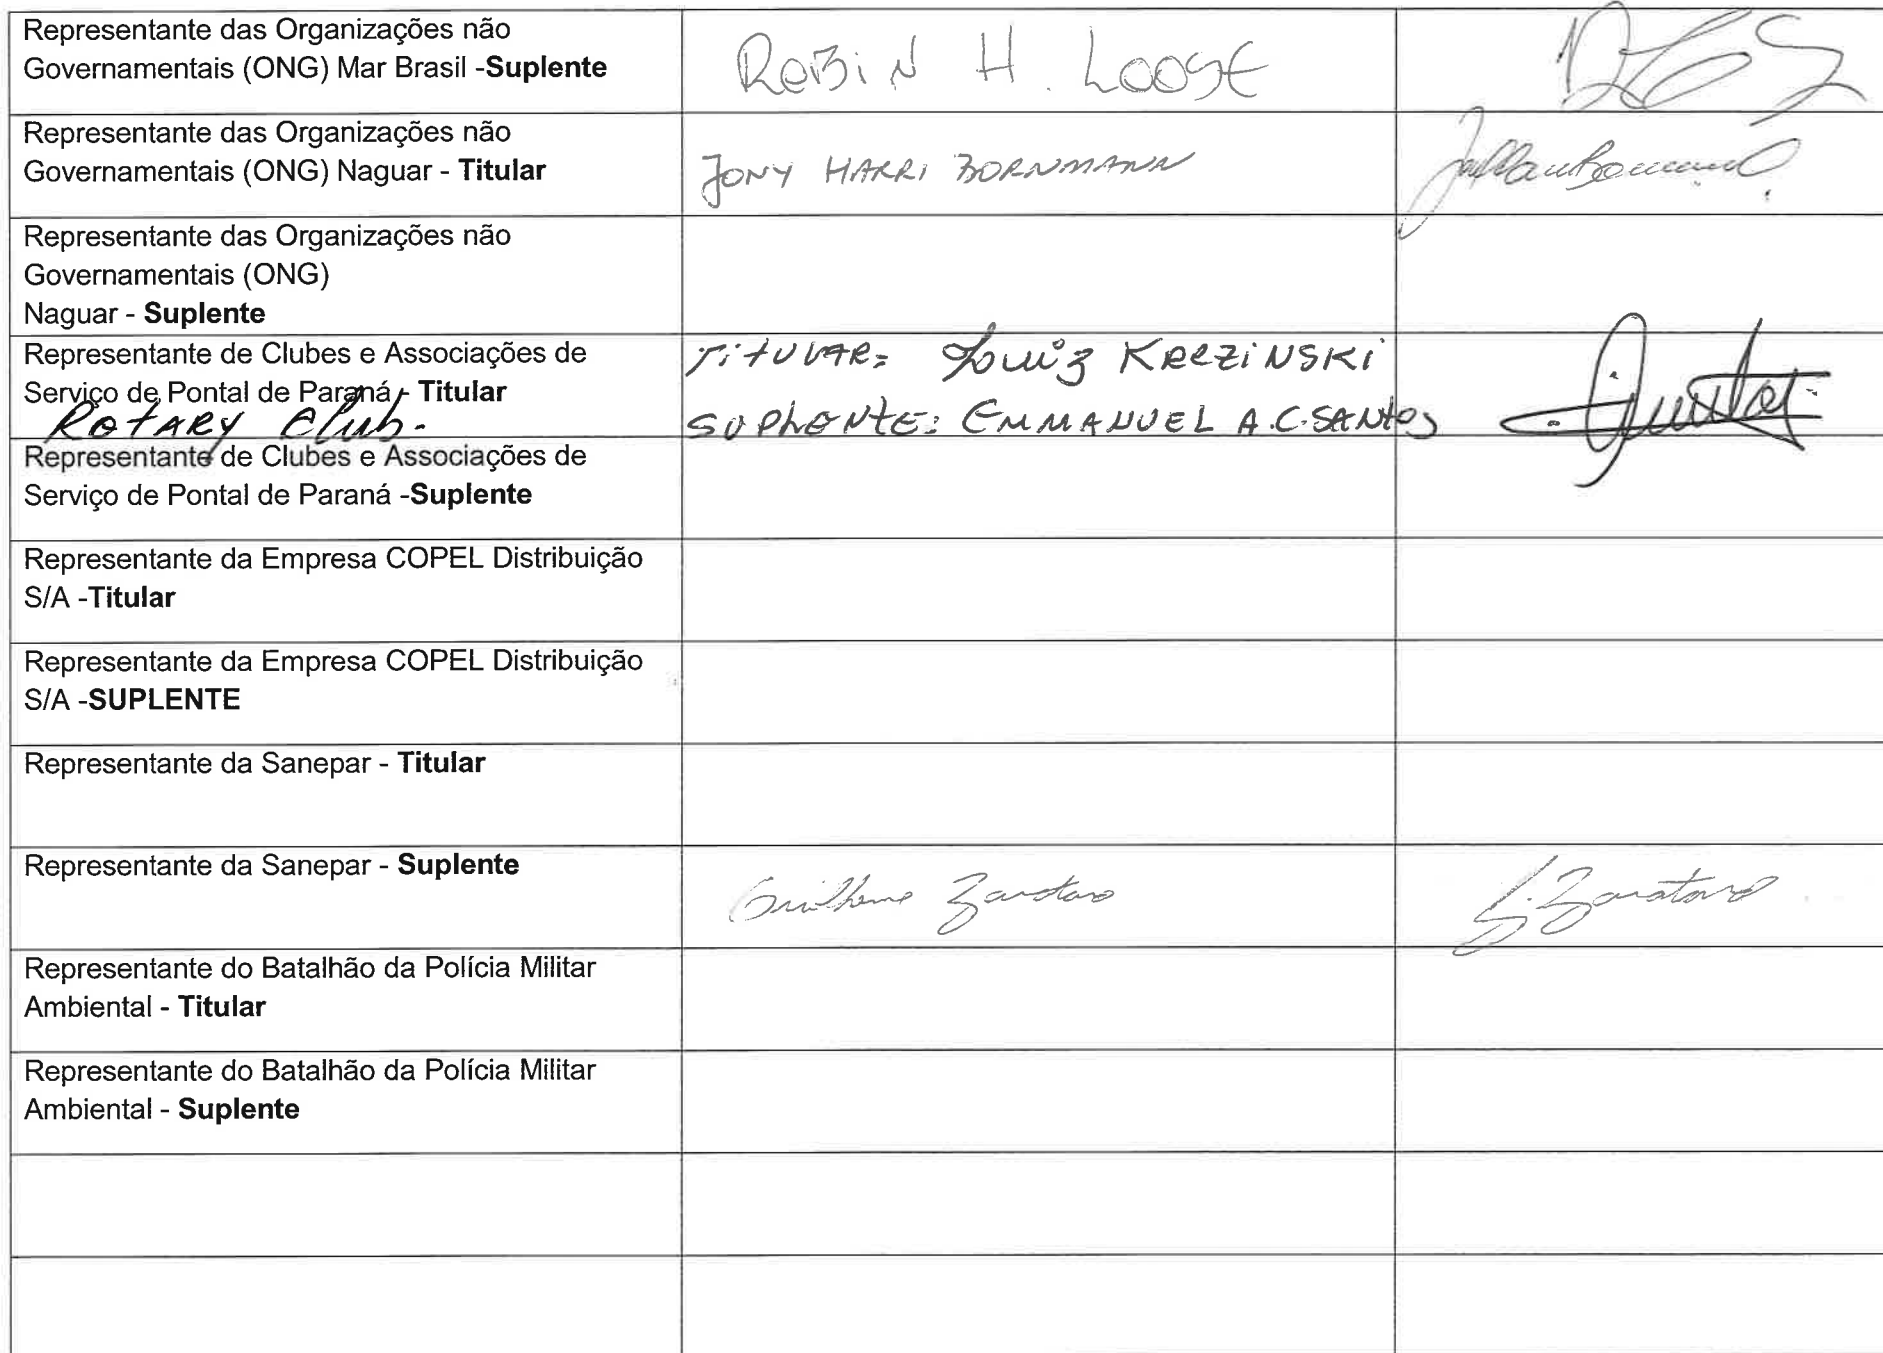 Representante das Organizações não
Governamentais (ONG) Mar Brasil -Suplente
ROBIN H. LOOSE
Representante das Organizações não
Governamentais (ONG) Naguar - Titular
JONY HARRI BORNMANN
Representante das Organizações não
Governamentais (ONG)
Naguar - Suplente
Representante de Clubes e Associações de
Serviço de Pontal de Paraná - Titular
ROTARY Club.
TITULAR: Luiz KREZINSKI
SUPLENTE: EMMANUEL A.C.SANTOS
Representante de Clubes e Associações de
Serviço de Pontal de Paraná -Suplente
Representante da Empresa COPEL Distribuição
S/A -Titular
Representante da Empresa COPEL Distribuição
S/A -SUPLENTE
Representante da Sanepar - Titular
Representante da Sanepar - Suplente
Guilherme Zavataro
G. Zavataro
Representante do Batalhão da Polícia Militar
Ambiental - Titular
Representante do Batalhão da Polícia Militar
Ambiental - Suplente